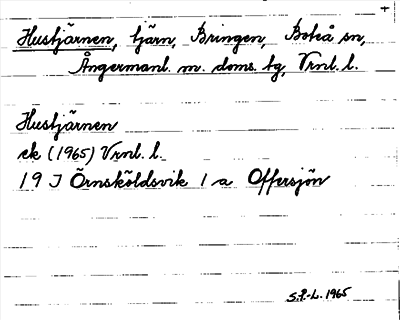 +
Hustjärnen, tjärn, Bringen, Boteå sn,
Ångermanl. m. doms. tg, Vrnl. l.
Hustjärnen
ek (1965) Vrnl. l.
19 J Örnsköldsvik 1 a Offersjön
S.P.-L. 1965